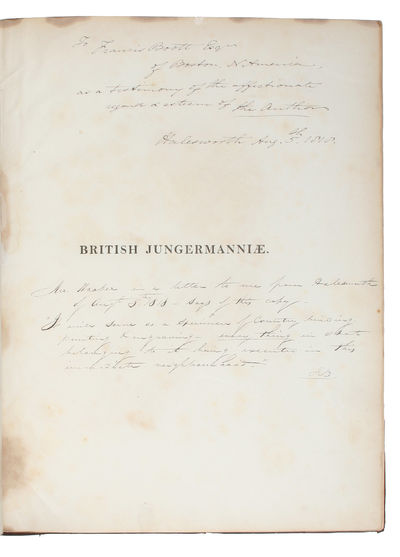 To Francis Boott Esqr
of Boston, N. America,
as a testimony of the affectionate
regard & esteem of the Author
Halesworth Aug. 5th 1818.
BRITISH JUNGERMANNIÆ.
Mr. Hooker in a letter to me from Halesworth
of Augt 5th says of this copy
"It will serve as a specimen of Country binding,
printing & engraving every thing in short
belonging to it being executed in this
immediate neighbourhood"